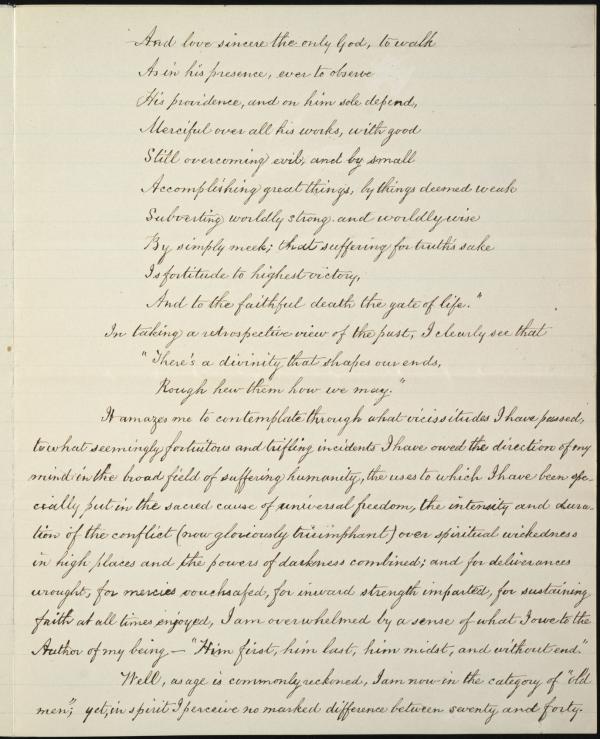 And love sincere the only God, to walk
As in his presence, ever to observe
His providence, and on him sole depend,
Merciful over all his works, with good
Still overcoming evil, and by small
Accomplishing great things, by things deemed weak
Subverting worldly strong and worldly wise
By simply meek; that suffering for truth's sake
Is fortitude to highest victory,
And to the faithful death the gate of life."
In taking a retrospective view of the past, I clearly see that
"There's a divinity that shapes our ends,
Rough hew them how we may."
It amazes me to contemplate through what vicissitudes I have passed,
to what seemingly fortuitous and trifling incidents I have owed the direction of my
mind in the broad field of suffering humanity, the uses to which I have been spe-
cially put in the sacred cause of universal freedom, the intensity and dura-
tion of the conflict (now gloriously triumphant) over spiritual wickedness
in high places and the powers of darkness combined; and for deliverances
wrought, for mercies vouchsafed, for inward strength imparted, for sustaining
faith at all times enjoyed, I am overwhelmed by a sense of what I owe to the
Author of my being — "Him first, him last, him midst, and without end."
Well, as age is commonly reckoned, I am now in the category of "old
men"; yet, in spirit I perceive no marked difference between seventy and forty.